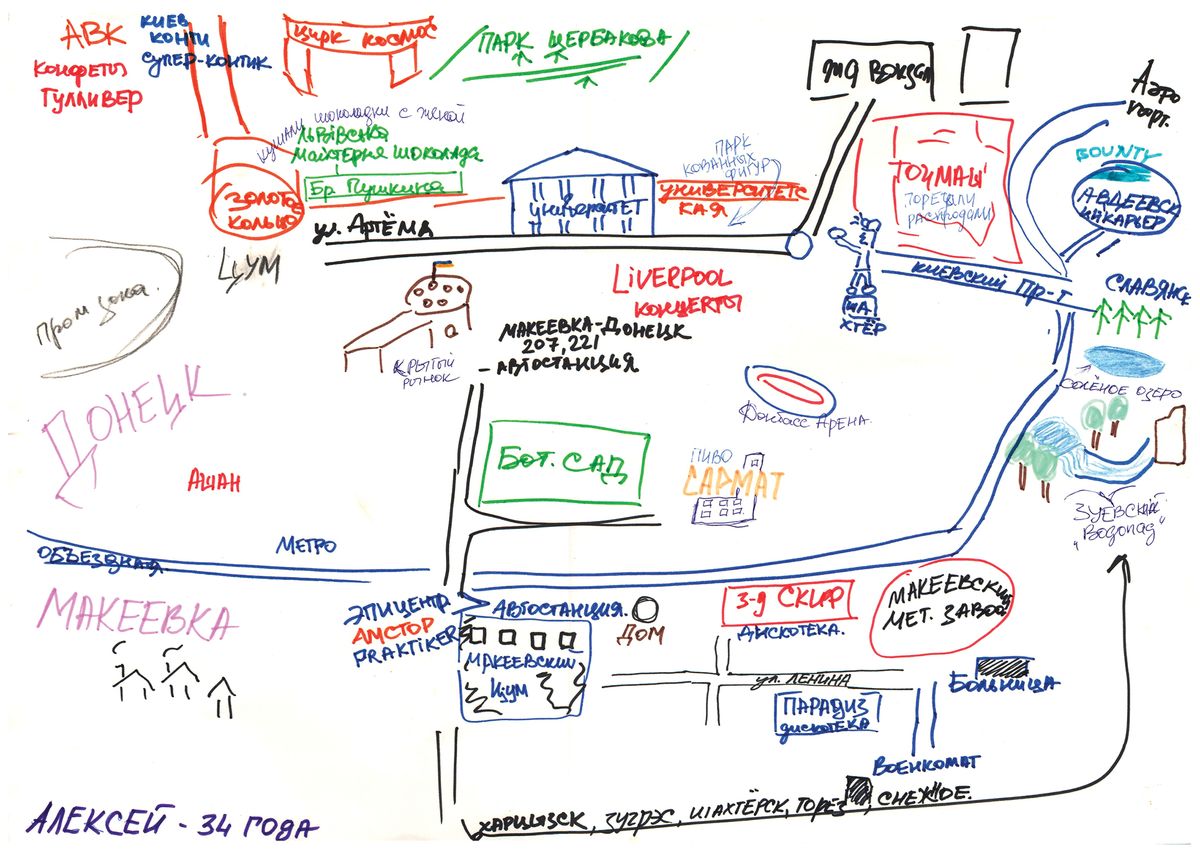 АВК
КОНФЕТЫ
ГУЛЛИВЕР
КИЕВ
КОНТИ
СУПЕР-КОНТИК
ЦИРК КОСМОС
ПАРК ЩЕРБАКОВА
ЖД ВОКЗАЛ
Аэро
порт.
кушали шоколадки с женой
ЛЬВІВСЬКА
МАЙСТЕРНЯ ШОКОЛАДА
Бр. Пушкина
ЗОЛОТОЕ
КОЛЬЦО
УНИВЕРСИТЕТ
ПАРК
КОВАННЫХ
ФИГУР
УНИВЕРСИТЕТС
КАЯ
ТОЧМАШ
ПОРЕЗАЛИ
РАСПРОДАЛИ
BOUNTY
АВДЕЕВСК
ИЙ КАРЬЕР
ул. Артёма
ЦУМ
Пром зона.
LIVERPOOL
КОНЦЕРТЫ
КИЕВСКИЙ Пр-т
ША
ХТЁР
СЛАВЯНСК
МАКЕЕВКА-ДОНЕЦК
207, 221
- АВТОСТАНЦИЯ
КРЫТЫЙ
РЫНОК
СОЛЁНОЕ ОЗЕРО
Донбасс Арена.
ДОНЕЦК
АШАН
БОТ. САД
ПИВО
САРМАТ
ЗУЕВСКИЙ
"Водопад"
ОБЪЕЗДНАЯ
МЕТРО
МАКЕЕВКА
ЭПИЦЕНТР
АМСТОР
PRAKTIKER
АВТОСТАНЦИЯ.
ДОМ
3-Д СКИФ
ДИСКОТЕКА.
МАКЕЕВСКИЙ
МЕТ. ЗАВОД
МАКЕЕВСКИЙ
ЦУМ
ул. ЛЕНИНА
БОЛЬНИЦА
ПАРАДИЗ
дискотека
ВОЕНКОМАТ
ХАРЦЫЗСК, ЗУГРЭС, ШАХТЁРСК, ТОРЕЗ, СНЕЖНОЕ.
АЛЕКСЕЙ - 34 ГОДА